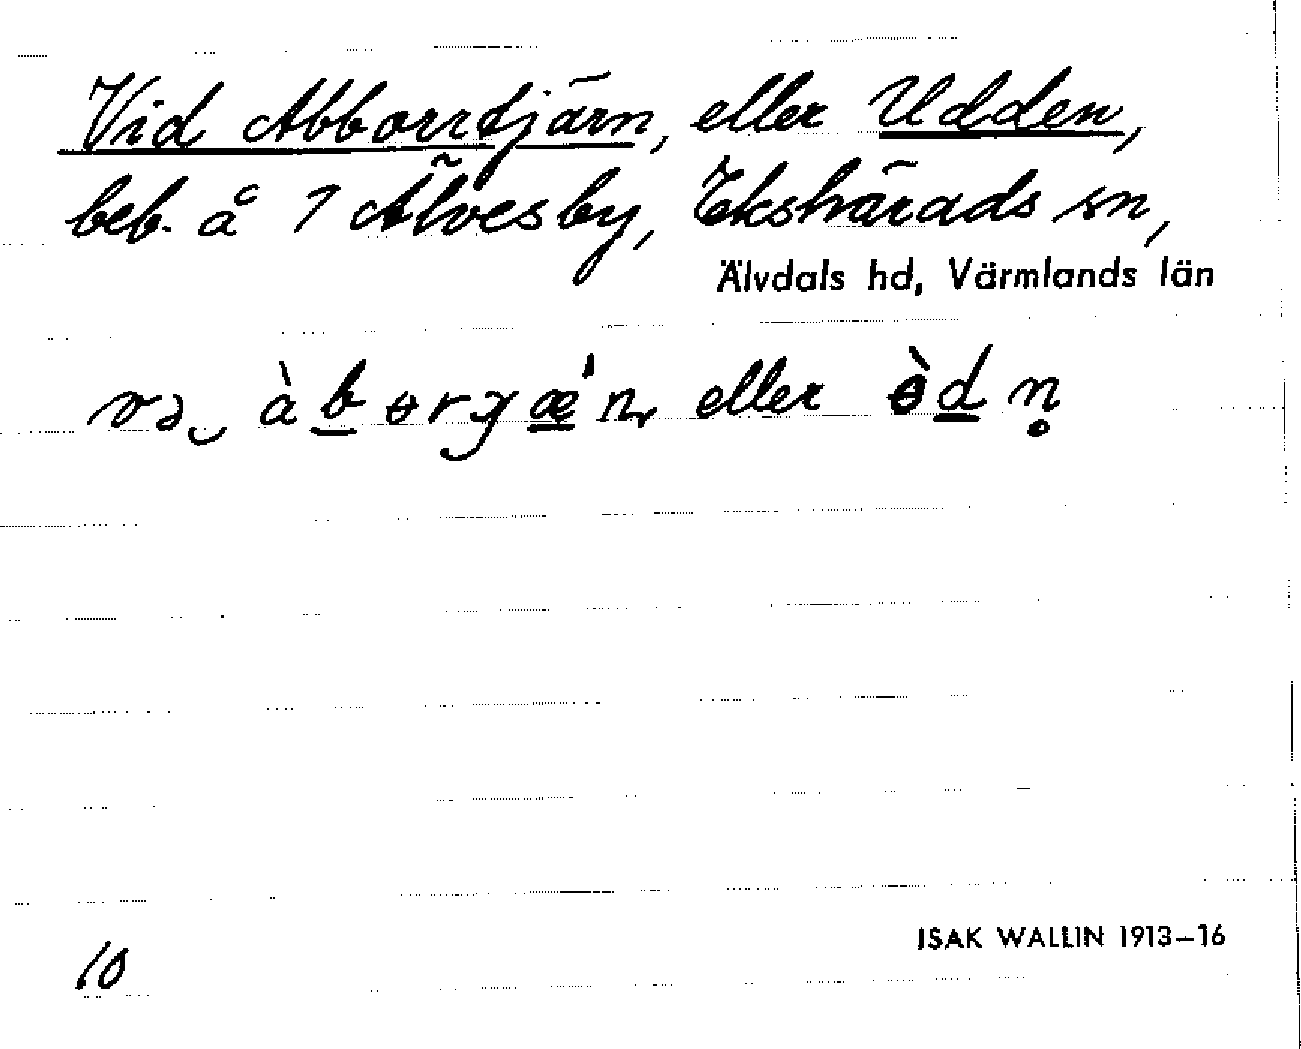 Vid Abborrtjärn, eller Udden,
beb. å 7 Älvesby, Ekshärads sn,
Älvdals hd, Värmlands län
və‿ àbɵrȷæ'n, eller ɵ̀dn̥
10
ISAK WALLIN 1913–16